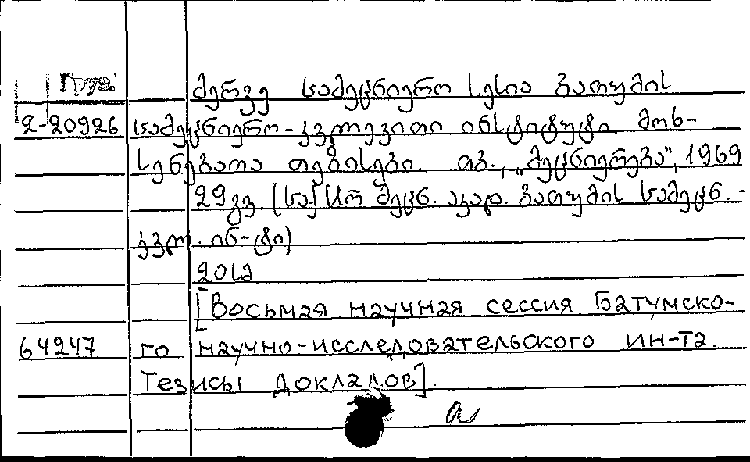 Груз.
მერვე სამეცნიერო სესია ბათუმის
2-20926 სამეცნიერო-კვლევითი ინსტიტუტი მოხ-
სენებათა თეზისები. თბ., „მეცნიერება", 1969
29 გვ. (საქ. სსრ მეცნ. აკად. ბათუმის სამეცნ.-
კვლ. ინ-ტი)
[Восьмая научная сессия Батумско-
64247 го научно-исследовательского ин-та.
Тезисы докладов].